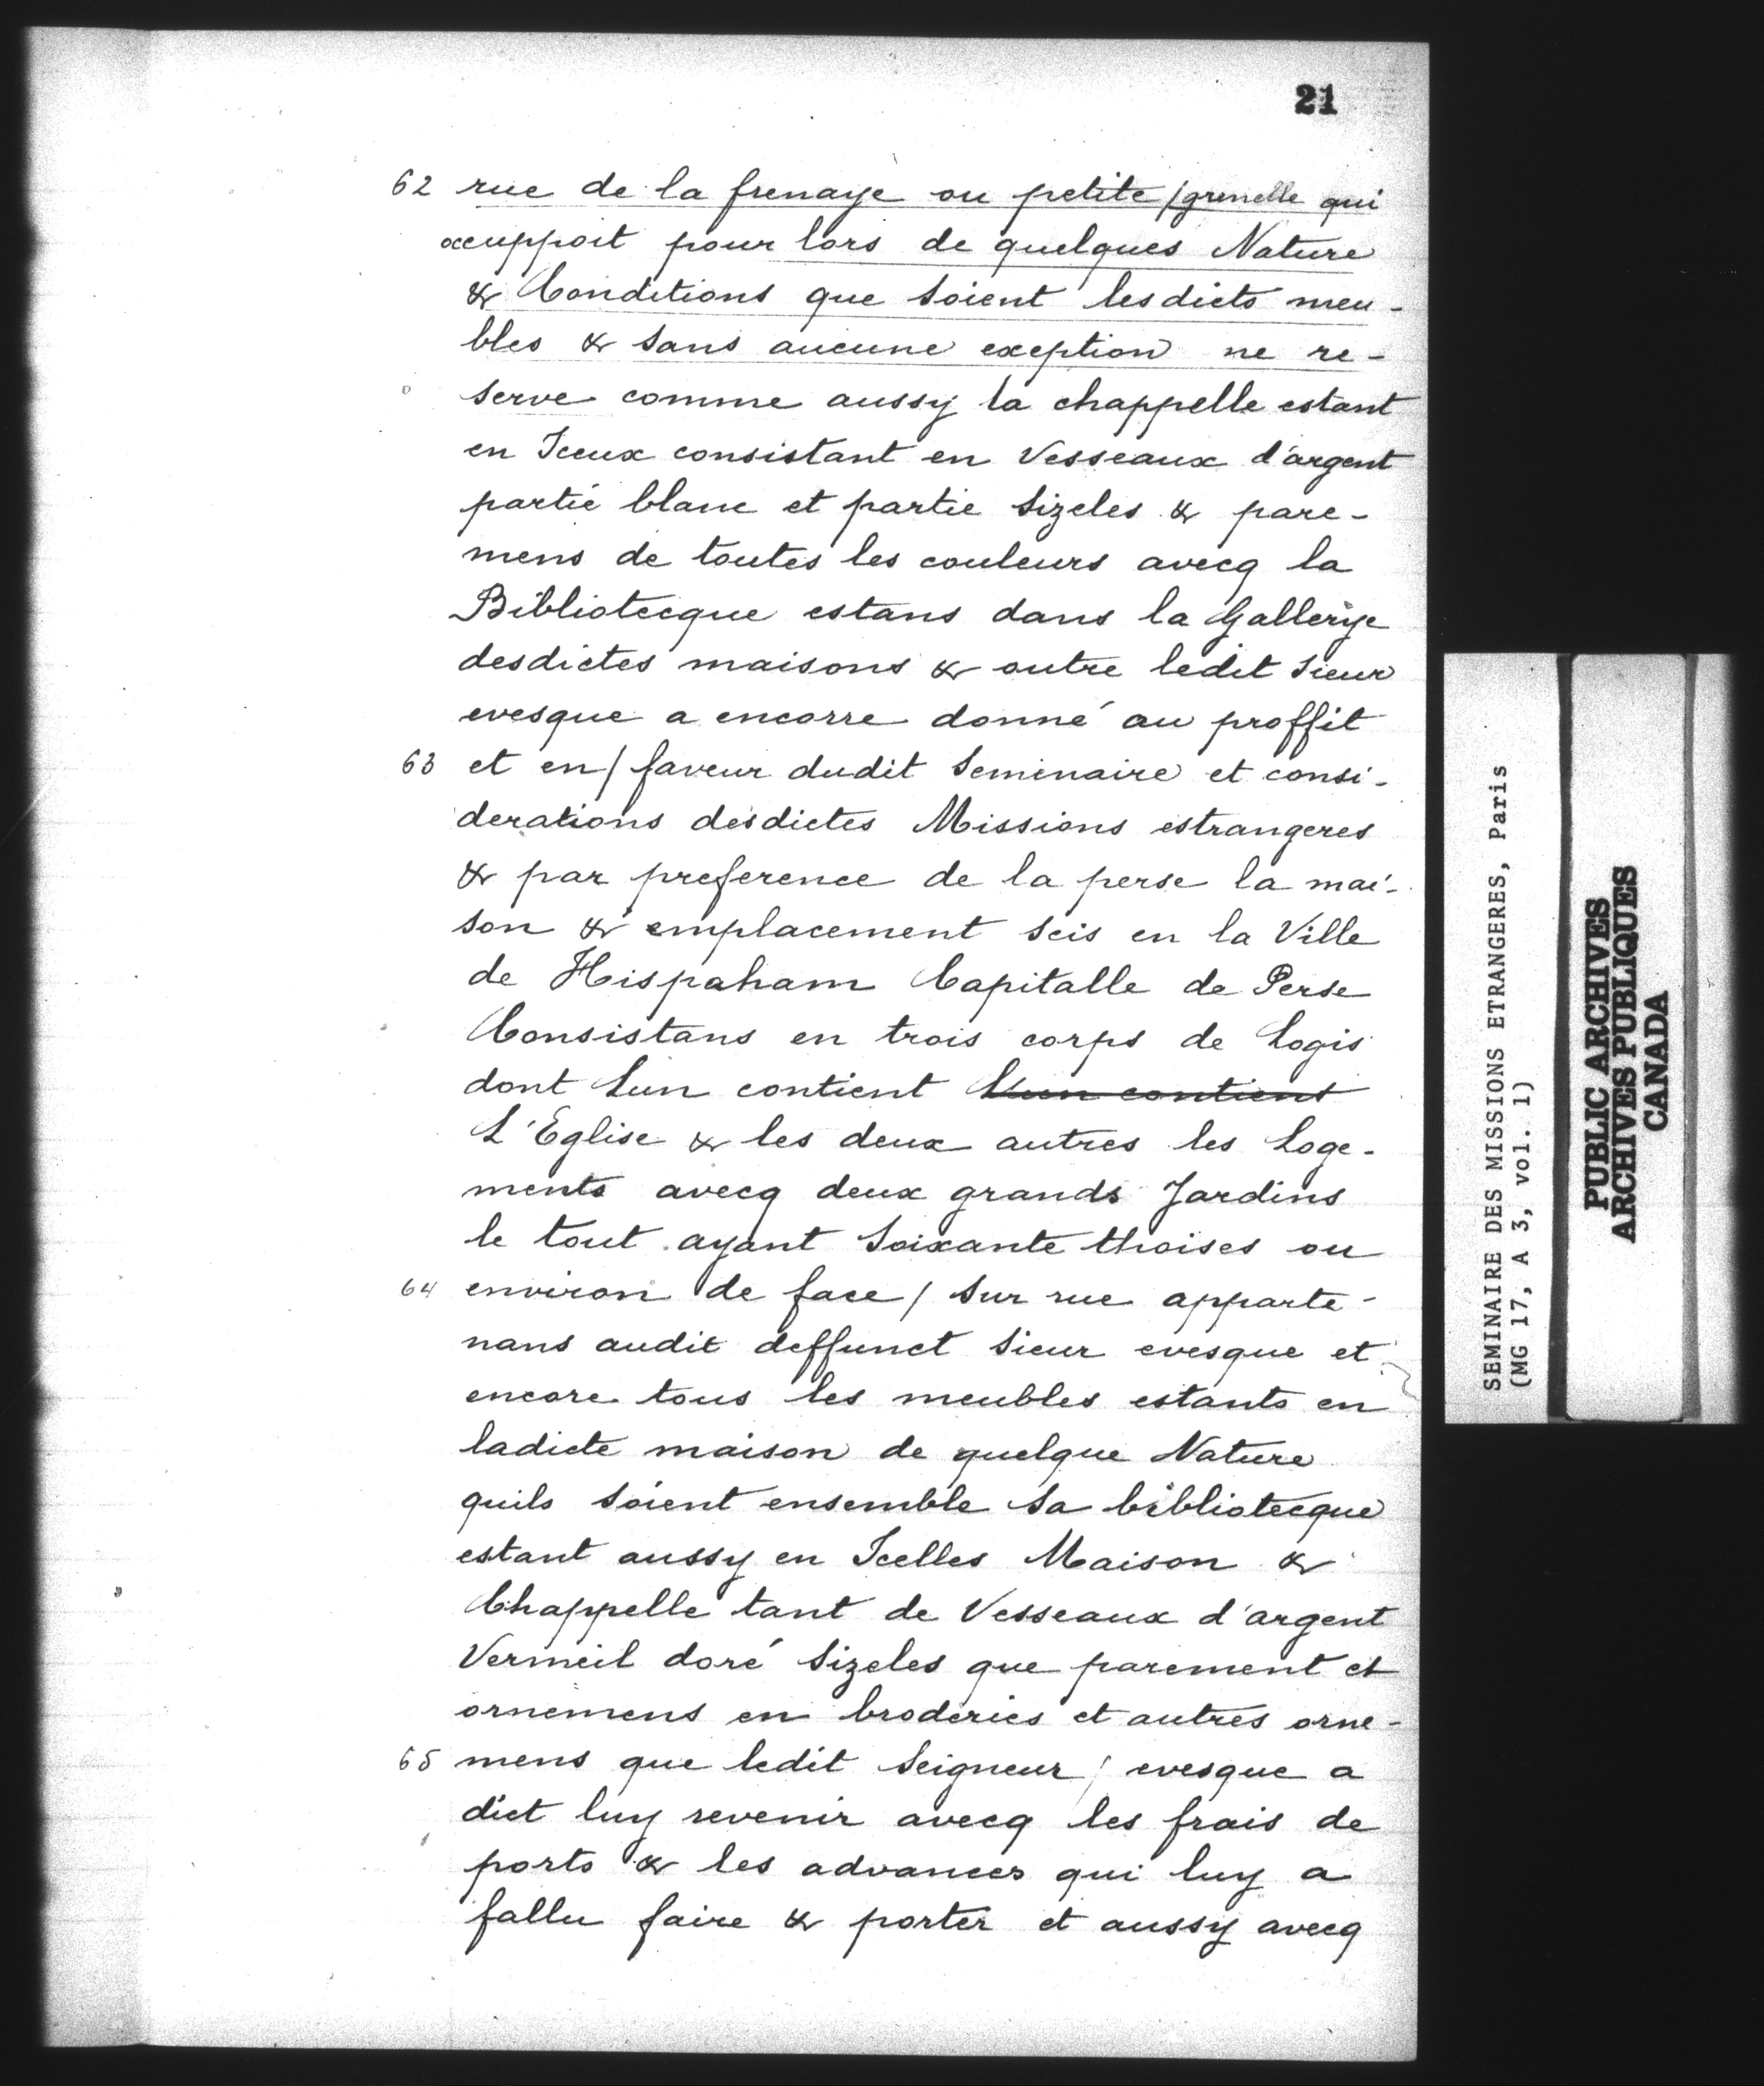 21
62 rue de la frenaye ou petite / grenelle qui
occuppoit pour lors de quelques Nature
& Conditions que soient lesdicts meu-
bles & sans aucune exeption ne re-
serve comme aussy la chappelle estant
en Iceux consistant en Vesseaux d'argent
partie blanc et partie sizeles & pare-
mens de toutes les couleurs avecq la
Bibliotecque estans dans la Gallerije
desdictes maisons & outre ledit sieur
evesque a encorre donné au proffit
63 et en / faveur dudit Seminaire et consi-
derations desdictes Missions estrangeres
& par preference de la perse la mai-
son & emplacement scis en la Ville
de Hispaham Capitalle de Perse
Consistans en trois corps de Logis
dont Lun contient L'un contient
L'Eglise & les deux autres les Loge-
ments avecq deux grands Jardins
le tout ayant Soixante thoises ou
64 environ de face / sur rue apparte-
nans audit deffunct sieur evesque et
encore tous les meubles estants en
ladicte maison de quelque Nature
quils soient ensemble sa bibliotecque
estant aussy en Icelles Maison &
Chappelle tant de Vesseaux d'argent
Vermeil doré sizeles que parement et
ornemens en broderies et autres orne-
65 mens que ledit Seigneur / evesque a
dict luy revenir avecq les frais de
ports & les advances qui luy a
fallu faire & porter et aussy avecq
SEMINAIRE DES MISSIONS ETRANGERES, Paris
(MG 17, A 3, vol. 1)
PUBLIC ARCHIVES
ARCHIVES PUBLIQUES
CANADA